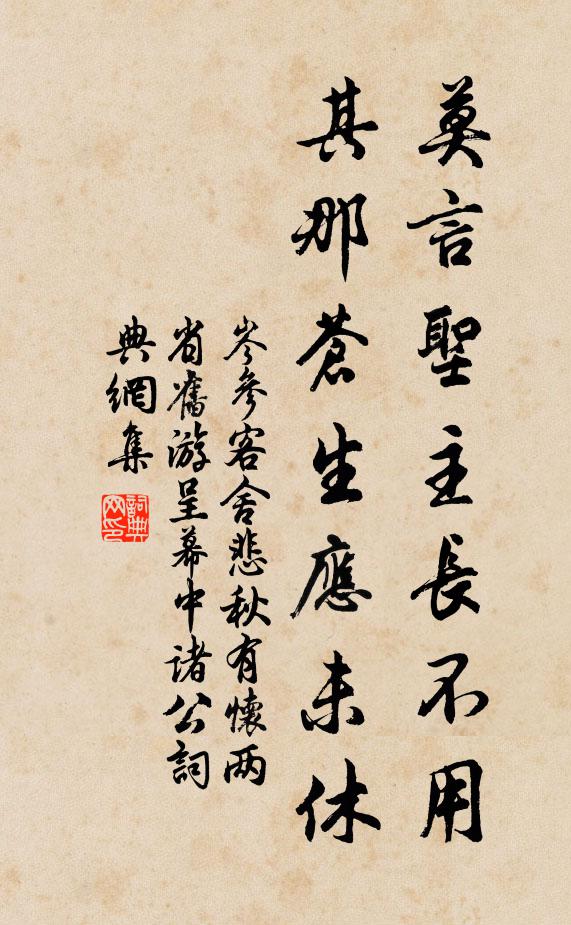 莫言聖主長不用
其那蒼生應未休
岑參客舍悲秋有懷两
省舊游呈幕中諸公詞
典網集
詞典
网印